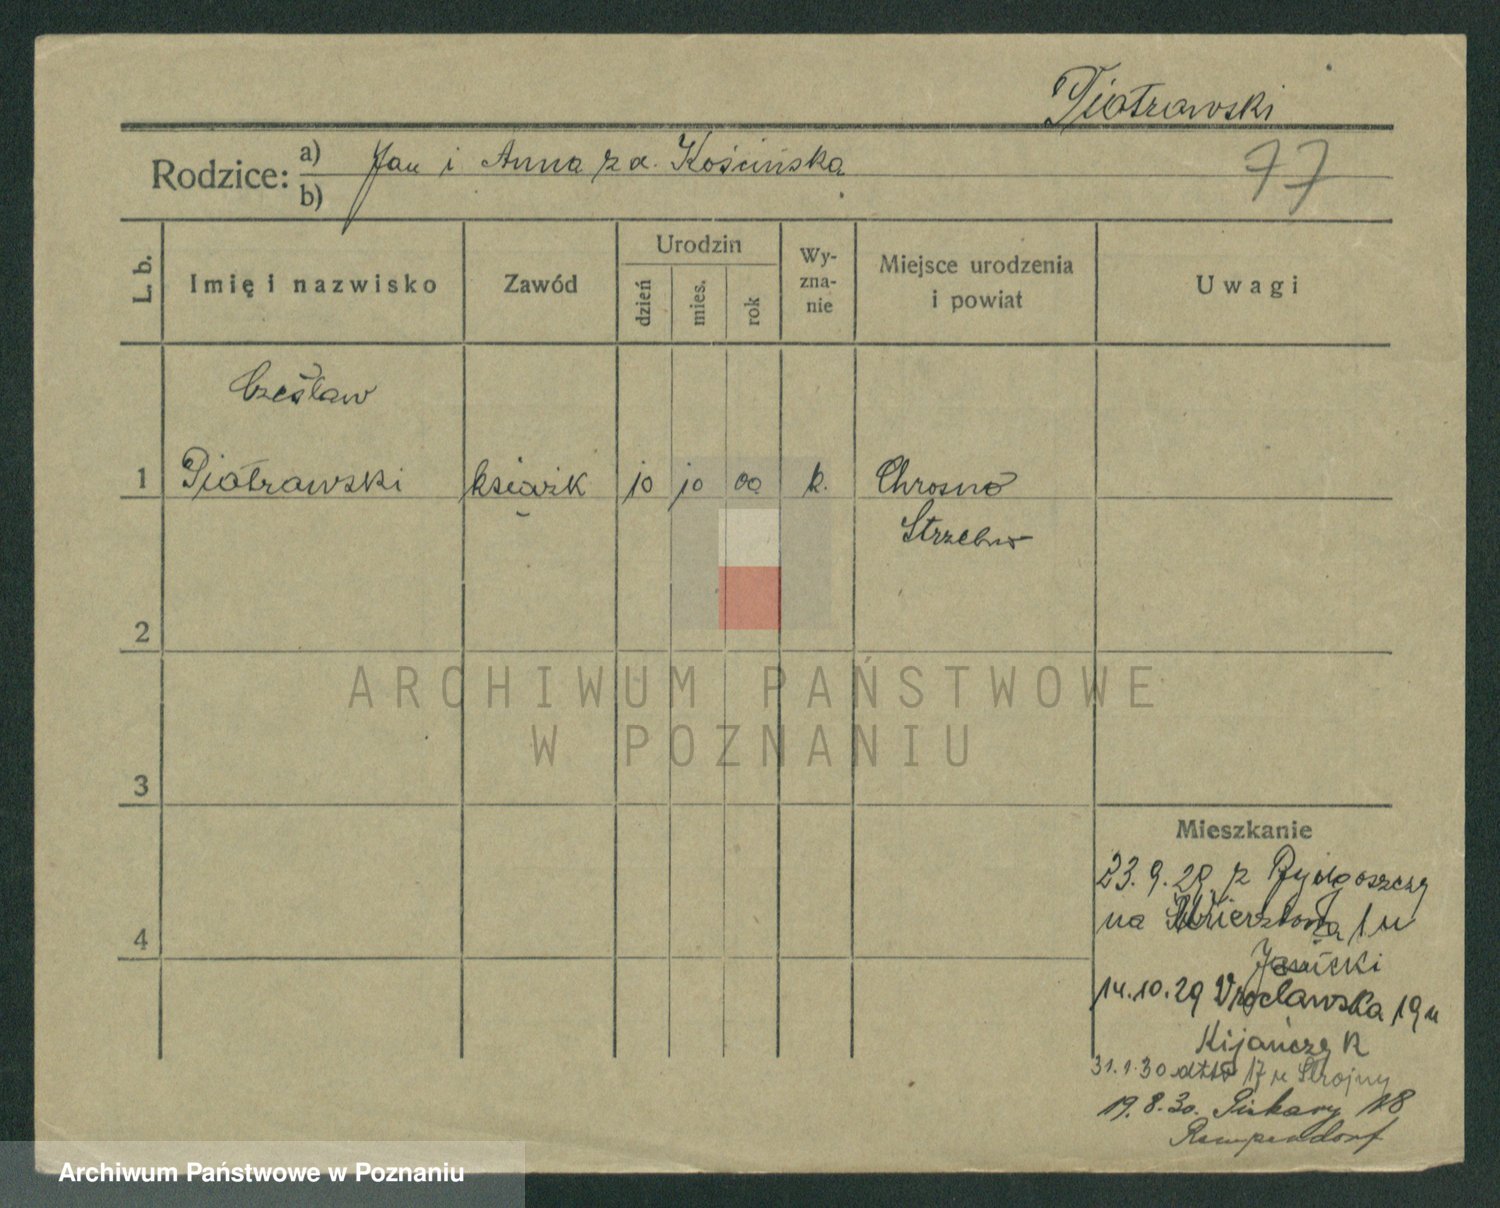 Piotrowski
Rodzice: a) Jan i Anna z d. Kościńska
b)
77
L. b. Imię i nazwisko Zawód Urodzin dzień mies. rok Wy-zna-nie Miejsce urodzenia i powiat Uwagi
Czesław
1 Piotrowski książk 10 10 00 k. Chrosno
Strzelno
2
3
Mieszkanie
23.9.29 z Bydgoszczy
4
na Wierzbową 1 u
Jasicki
14.10.29 Wrocławska 19 u
Kijańczyk
31.1.30 dtto 17 u Strojny
19.8.30. Piekary 18
Rempendorf
ARCHIWUM PAŃSTWOWE
W POZNANIU
Archiwum Państwowe w Poznaniu